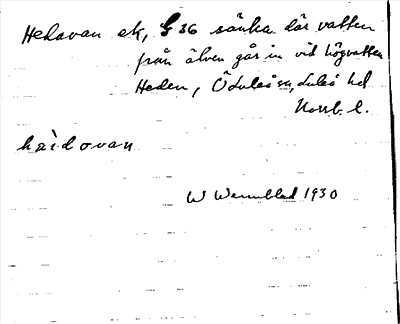 Hedavan ek, G 36 sänka där vatten
från älven går in vid högvatten
Heden, Ö Luleå sn, Luleå hd
Norrb. l.
haidovan
W Wennblad 1930